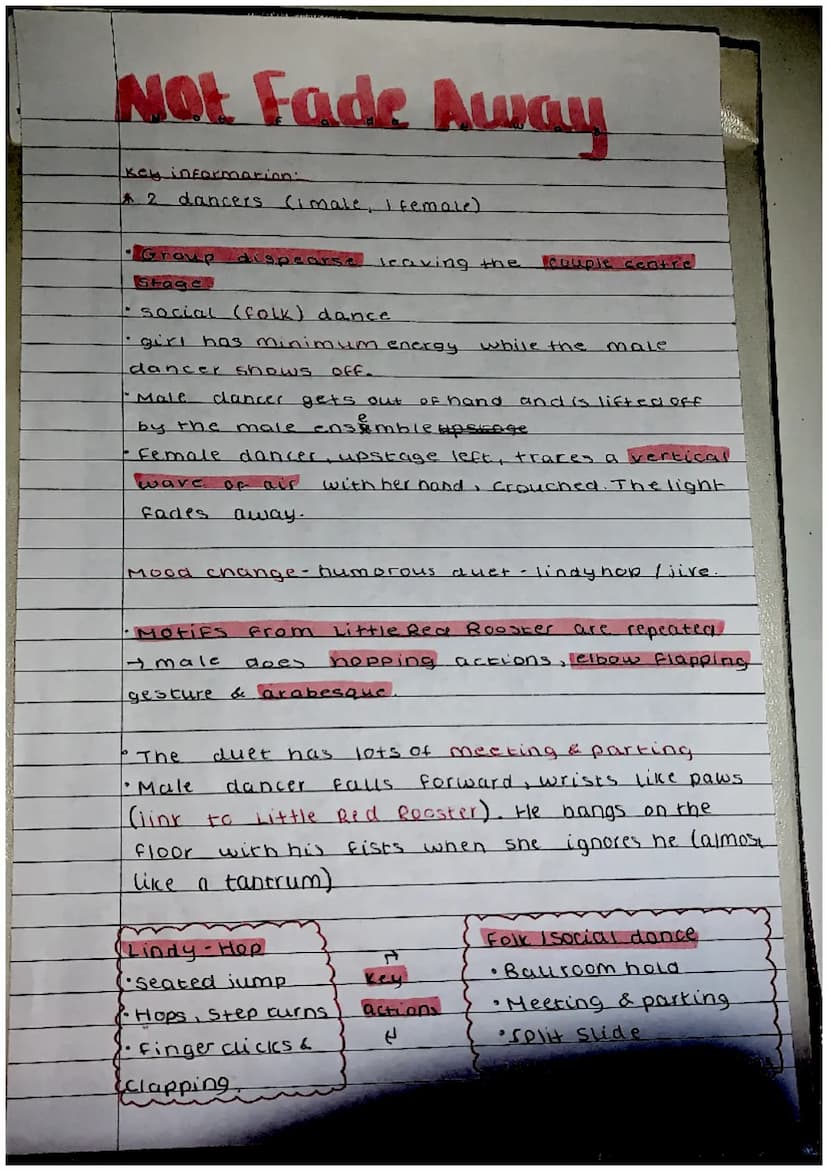 Not Fade Away
Key information:
* 2 dancers (1 male, 1 female)
• Group dispearse leaving the couple centre
stage.
• social (folk) dance
• girl has minimum energy while the male
dancer shows off.
• Male dancer gets out of hand and is lifted off
by the male ensemble upstage
• Female dancer, upstage left, traces a vertical
wave of air with her hand, crouched. The light
fades away.
Mood change - humorous duet - lindyhop / jive.
• Motifs from Little Red Rooster are repeated
→ male does hopping actions, elbow flapping
gesture & arabesque.
• The duet has lots of meeting & parting
• Male dancer falls forward, wrists like paws
(link to Little Red Rooster). He bangs on the
floor with his fists when she ignores he (almost
like a tantrum)
Lindy-Hop
• seated jump
• Hops, step turns
• Finger clicks &
clapping.
Key
actions
Folk / social dance
• Ballroom hold
• Meeting & parting
• Split slide